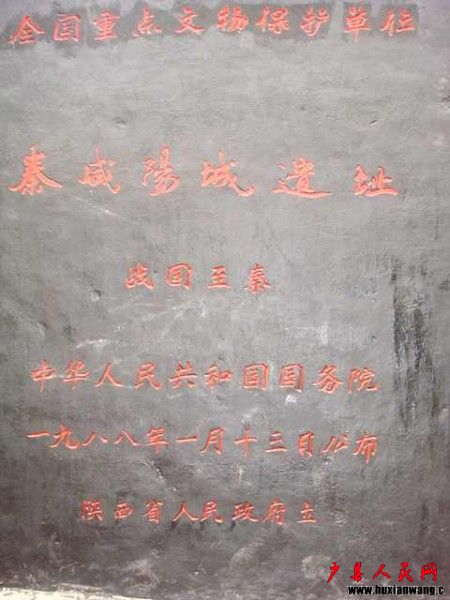 全国重点文物保护单位
秦咸陽城遗址
战国至秦
中华人民共和国国务院
一九八八年一月十三日公布
陕西省人民政府立
户县人民网
www.huxianwang.c